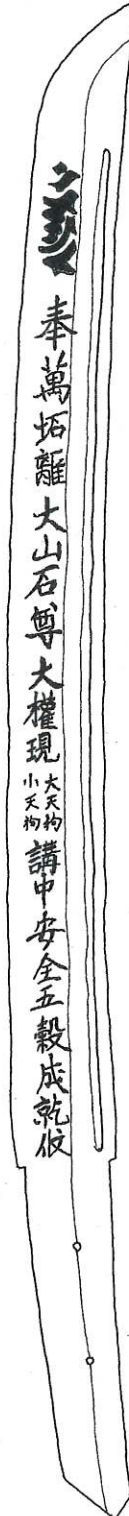 奉萬垢離大山石尊大權現大天拘小天拘講中安全五穀成就攸